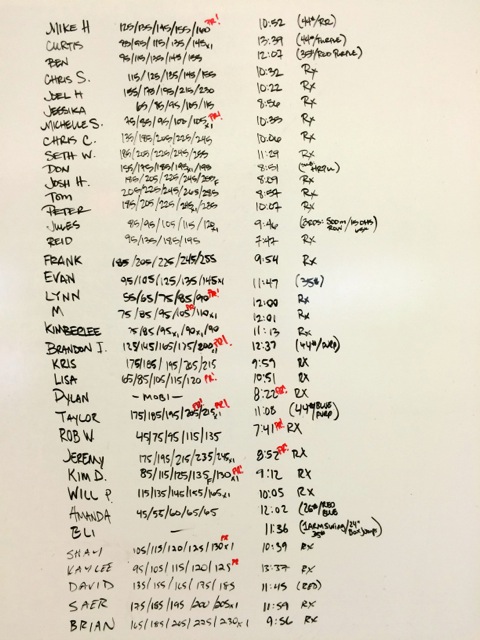 MIKE H 125/135/145/155/160 PR! 10:52 (44#/RR)
CURTIS 85/95/115/135/145x1 13:39 (44#/PURPLE)
BEN 95/115/135/145/155 12:07 (35#/RED PURPLE)
CHRIS S. 115/125/135/145/155 10:32 Rx
JOEL H 155/175/195/215/230 10:22 Rx
JESSIKA 65/85/95/105/115 8:56 Rx
MICHELLE S. 75/85/95/100/105x1 PR! 10:33 Rx
CHRIS C. 135/185/205/225/245 10:06 Rx
SETH W. 185/205/225/245/255 11:29 Rx
DON 155/175/185/195x1/195 8:51
JOSH H. 185/205/225/245/250F 8:09 Rx
TOM 205/225/245/265/285 8:57 Rx
PETER 185/205/225/245x1/235 10:07 Rx
JULES 85/95/105/115/120x1 9:46 500M ROW
REID 95/135/185/195 7:47 Rx
FRANK 185/205/225/245/255 9:54 Rx
EVAN 95/105/125/135/145x1 11:47 (35#)
LYNN 55/65/75/85/90 PR! 12:00 Rx
M 75/85/95/105/110x1 PR 12:01 Rx
KIMBERLEE 75/85/95x1/90x1/90 11:13 Rx
BRANDON J. 125/145/165/175/200x1 PR! 12:37 (44#/PURP)
KRIS 175/185/195/205/215 9:59 Rx
LISA 65/85/105/115/120 PR! 10:51 Rx
DYLAN - MOBI - 8:22 PR! Rx
TAYLOR 175/185/195/205/215x1 PR! PR! 11:08 (44#/BLUE PURP)
ROB W. 45/75/95/115/135 7:41 PR! RX
JEREMY 175/195/215/235/245x1 8:52 PR! RX
KIM D. 85/115/125/135F/130x1 PR! 9:12 RX
WILL P. 115/135/145/155/165x1 10:05 RX
AMANDA 45/55/60/65/65 12:02 (26#/RED BLUE)
ELI — 11:36 (1 ARM SWING/24" 35# BOX JUMPS)
SHAVI 105/115/120/125/130x1 PR 10:39 Rx
KAYLEE 95/105/115/120/125 PR 13:37 Rx
DAVID 135/155/165/175/185 11:45 (RED)
SAER 125/185/195/200/205x1 11:59 Rx
BRIAN 165/185/205/225/230x1 9:56 Rx